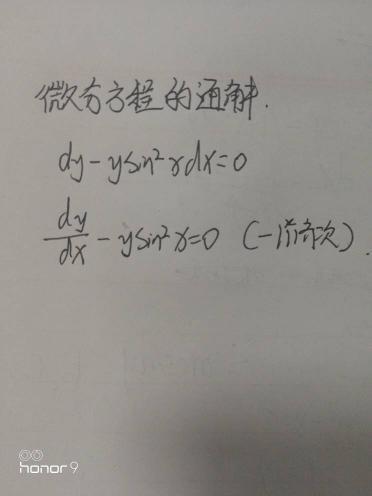 微分方程的通解.
dy-ysin²xdx=0
dy/dx - ysin²x=0 (一阶齐次).
honor 9